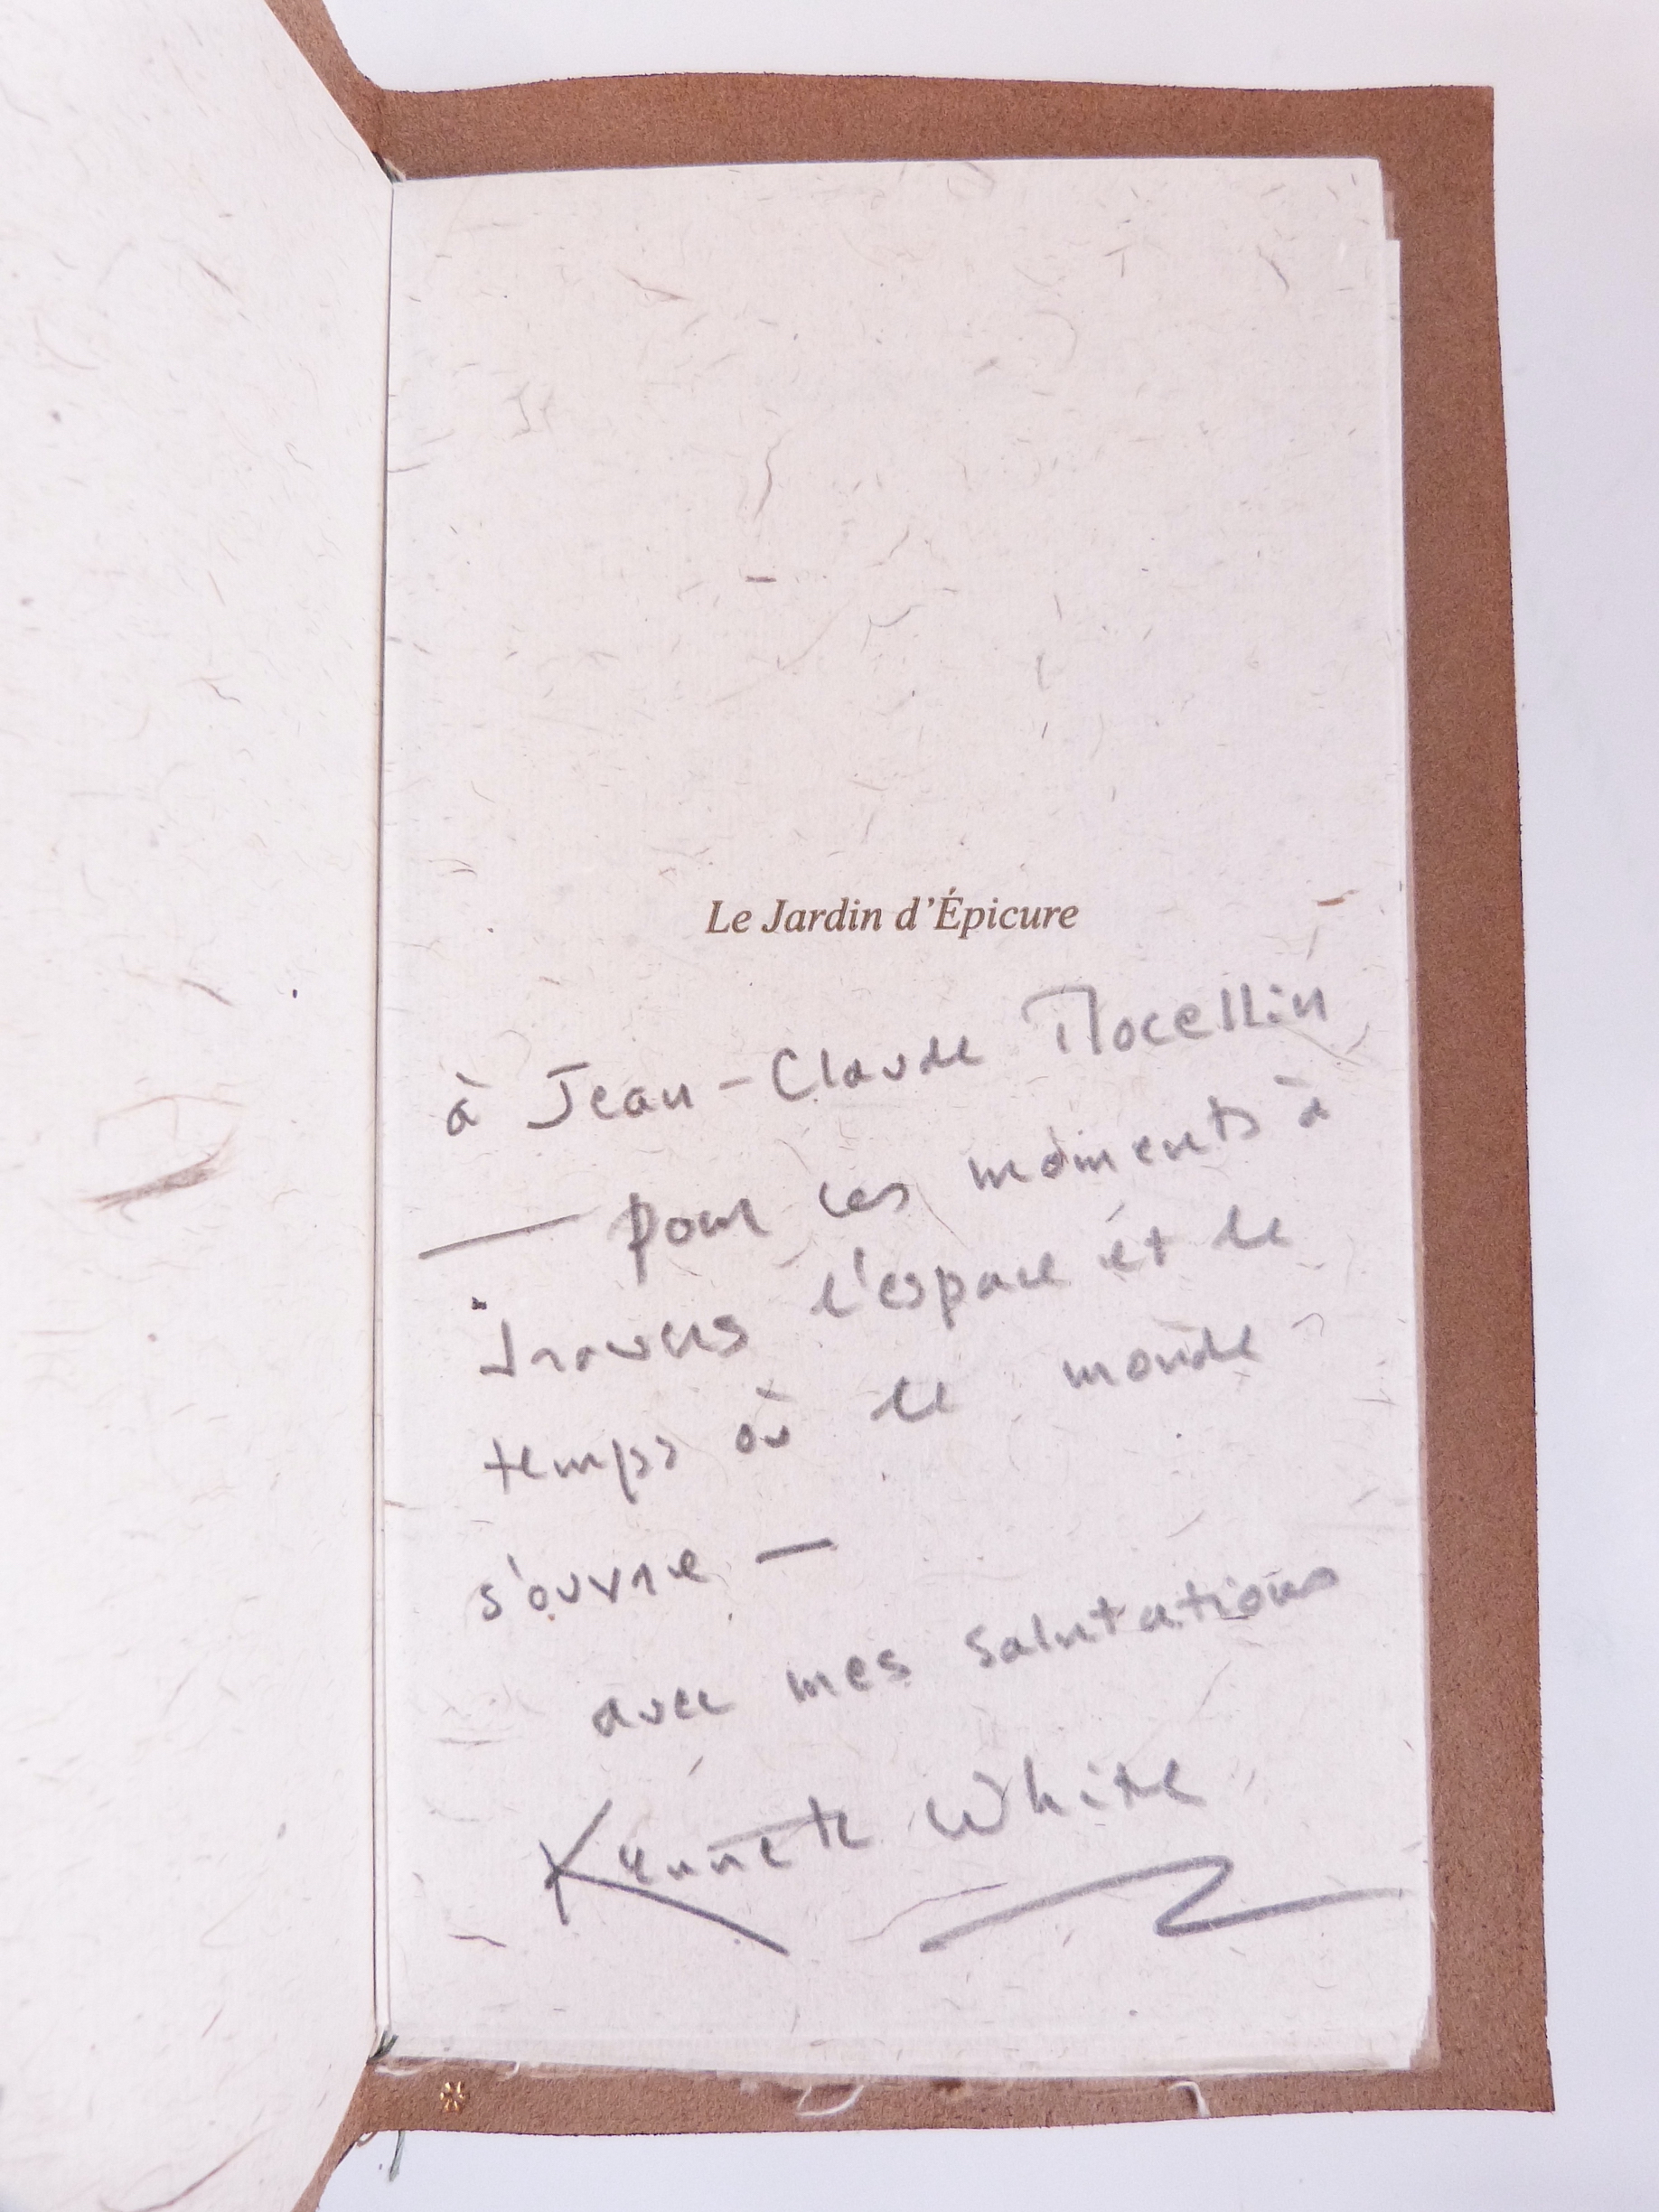 Le Jardin d'Épicure
à Jean-Claude Mocellin
— pour ces moments à
travers l'espace et le
temps où le monde
s'ouvre —
avec mes salutations
Kenneth White